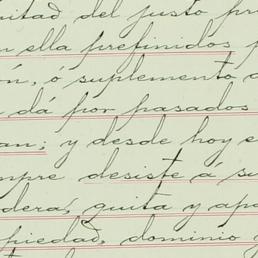 mitad del justo pre
n ella prefinidos p
ón, ó suplemento d
dá por pasados
an; y desde hoy e
mpre desiste á su
dera, quita y apa
piedad, dominio y